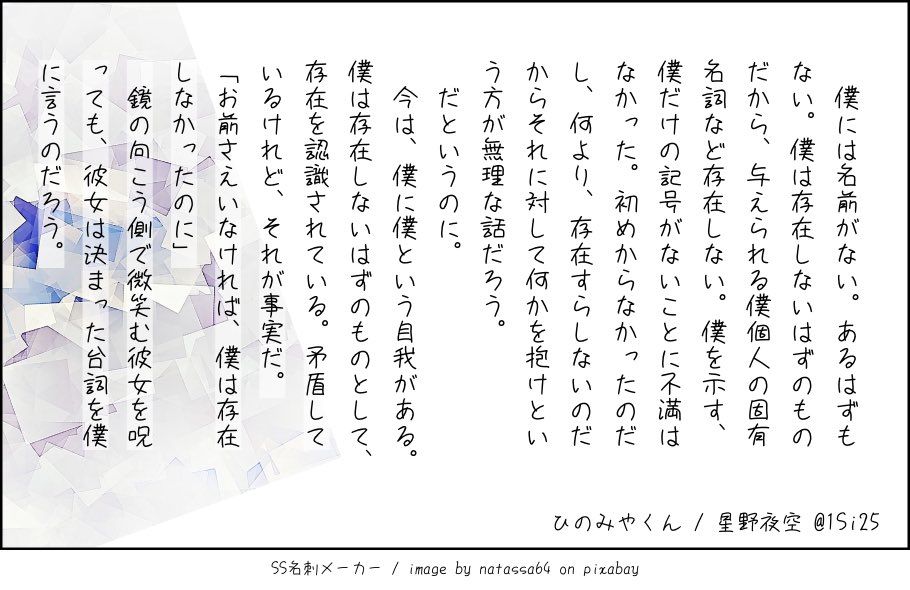 僕には名前がない。あるはずも
ない。僕は存在しないはずのもの
だから、与えられる僕個人の固有
名詞など存在しない。僕を示す、
僕だけの記号がないことに不満は
なかった。初めからなかったのだ
し、何より、存在すらしないのだ
からそれに対して何かを抱けとい
う方が無理な話だろう。
　だというのに。
　今は、僕に僕という自我がある。
僕は存在しないはずのものとして、
存在を認識されている。矛盾して
いるけれど、それが事実だ。
「お前さえいなければ、僕は存在
しなかったのに」
　鏡の向こう側で微笑む彼女を呪
っても、彼女は決まった台詞を僕
に言うのだろう。
ひのみやくん / 星野夜空 @1Si25
SS名刺メーカー / image by natassa64 on pixabay